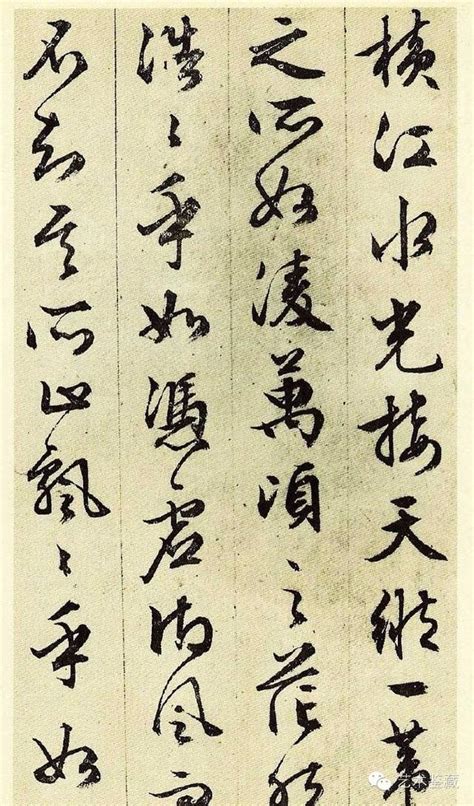 橫江水光接天縱一葦
之所如凌萬頃之茫然
浩〻乎如憑虛御風而
不知其所止飄〻乎如
艺术鉴藏